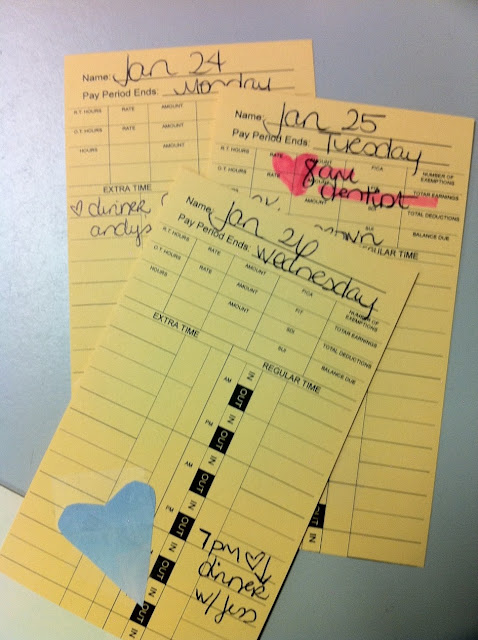 Name: Jan 24
Pay Period Ends: Monday
R.T. HOURS RATE AMOUNT
O.T. HOURS RATE AMOUNT
HOURS AMOUNT
EXTRA TIME
♡ dinner
andys
Name: Jan 25
Pay Period Ends: Tuesday
R.T. HOURS RATE AMOUNT FICA NUMBER OF EXEMPTIONS
O.T. HOURS RATE AMOUNT TOTAR EARNINGS
8am
dentist
AMOUNT SDI TOTAL DEDUCTIONS
SUI BALANCE DUE
REGULAR TIME
OUT
Name: Jan 26
Pay Period Ends: Wednesday
R.T. HOURS RATE AMOUNT FICA NUMBER OF EXEMPTIONS
O.T. HOURS RATE AMOUNT FIT TOTAR EARNINGS
HOURS AMOUNT SDI TOTAL DEDUCTIONS
SUI BALANCE DUE
EXTRA TIME REGULAR TIME
AM IN
OUT
PM IN
OUT
AM IN
OUT
PM IN
OUT
IN
OUT
7pm ♡
dinner
w/ Jess